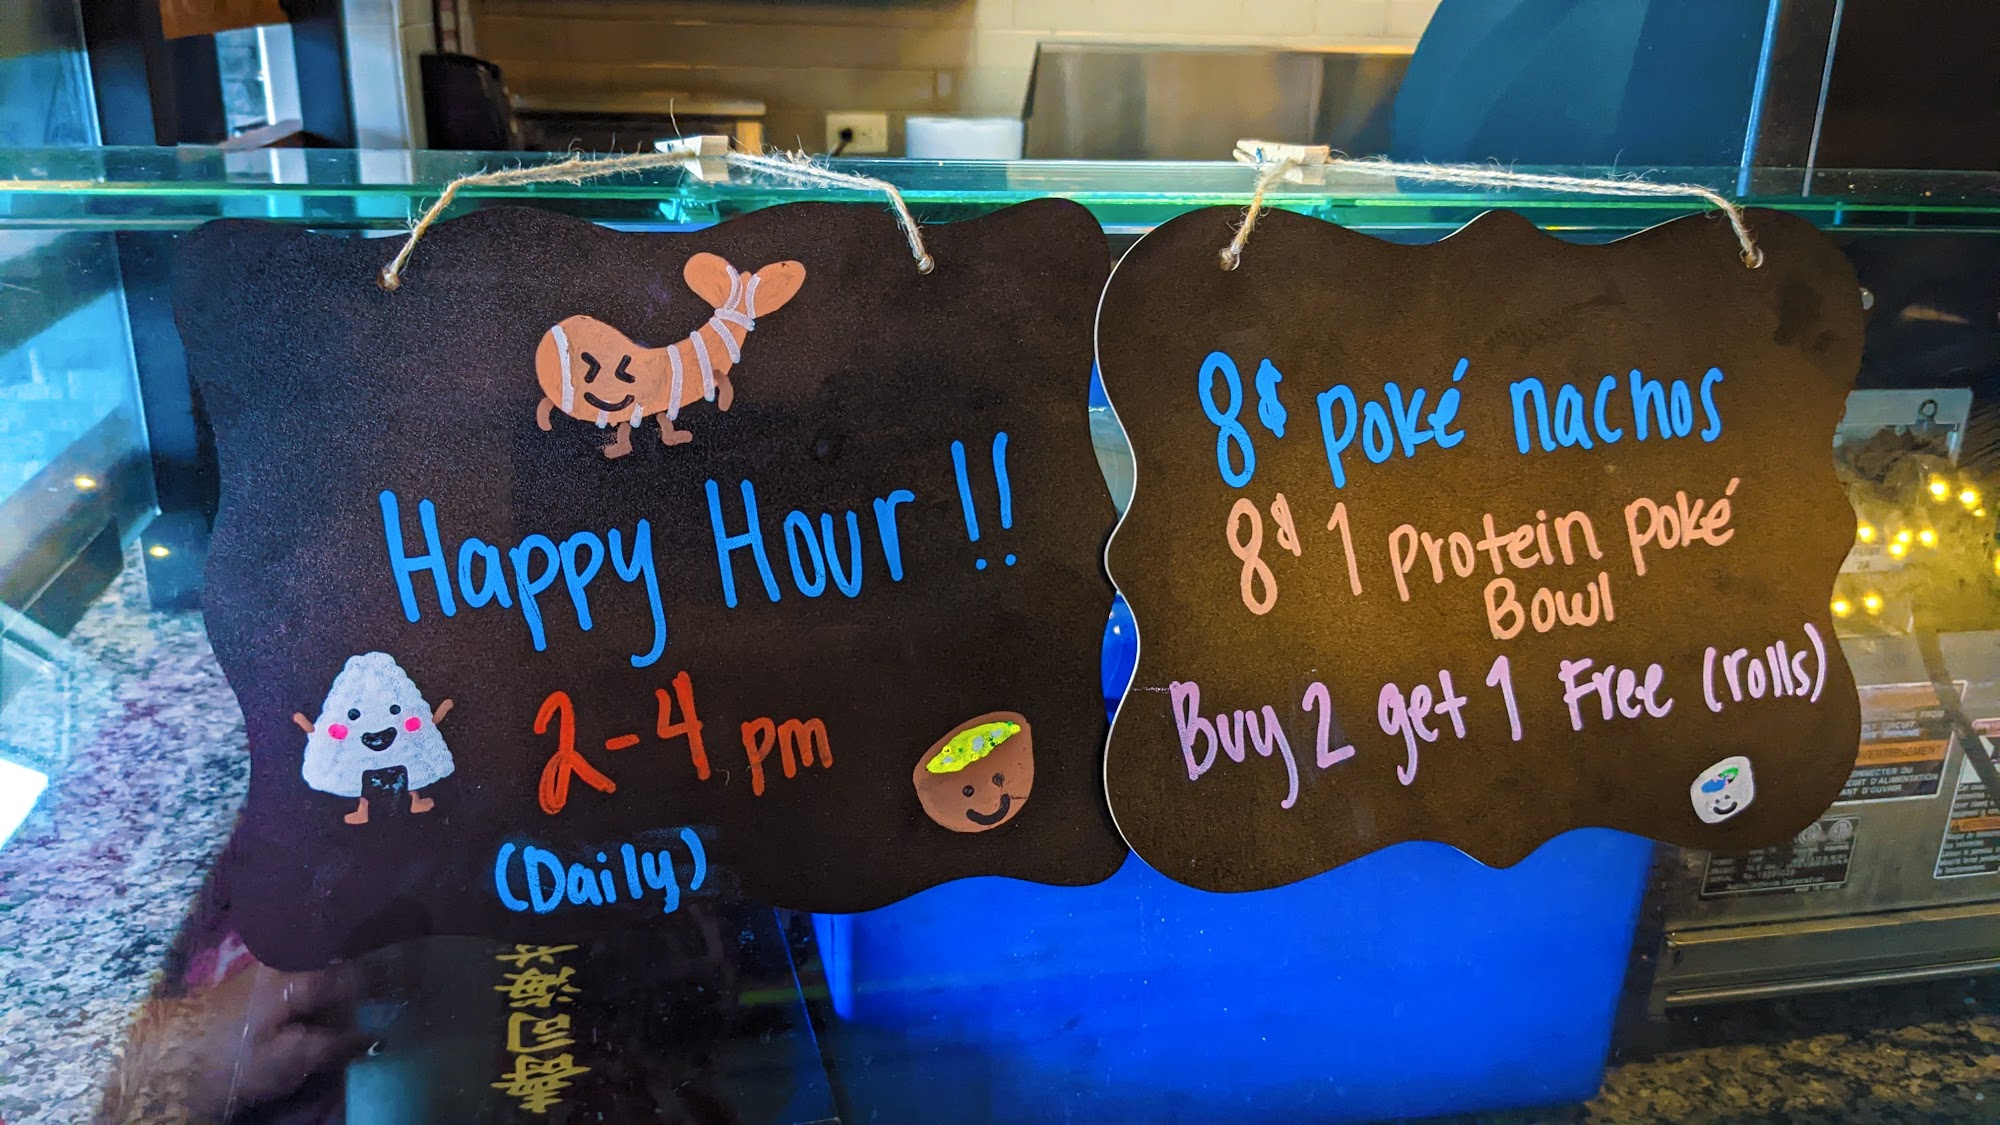 Happy Hour!!
2-4 pm
(Daily)
8$ Poké nachos
8$ 1 Protein Poké
Bowl
Buy 2 get 1 Free (rolls)